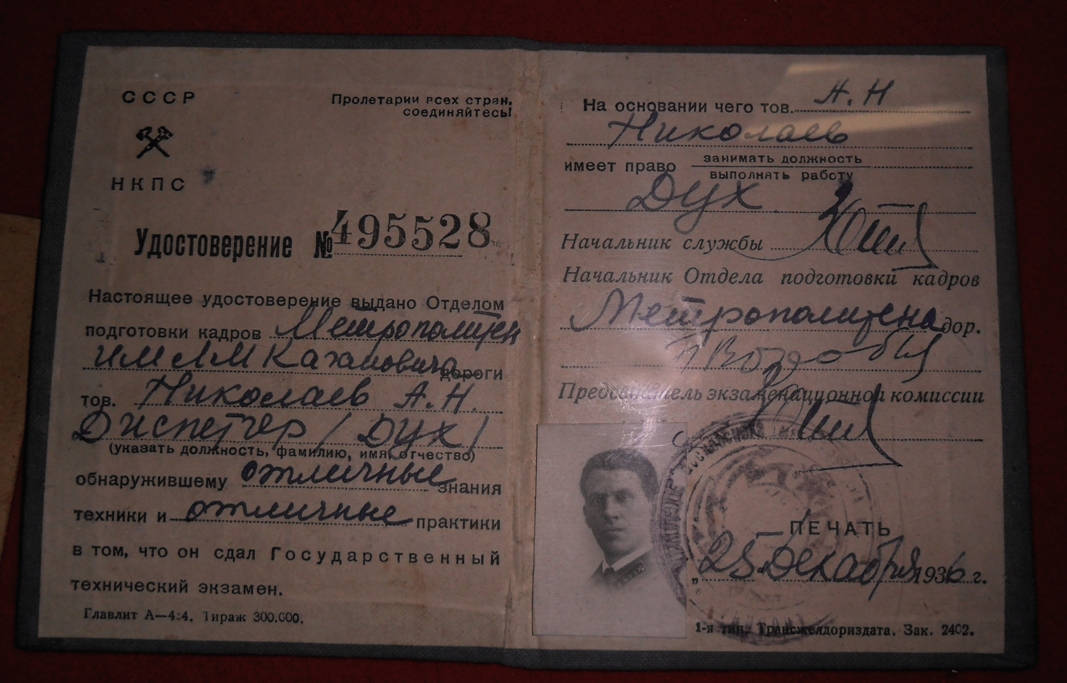 СССР
Пролетарии всех стран,
соединяйтесь!
НКПС
Удостоверение № 495528
Настоящее удостоверение выдано Отделом
подготовки кадров Метрополитен
им ЛМ Кагановича дороги
тов. Николаев А.Н.
Диспетчер / ДЦХ /
(указать должность, фамилию, имя, отчество)
обнаружившему отличные знания
техники и отличные практики
в том, что он сдал Государственный
технический экзамен.
Главлит А—4:4. Тираж 300.000.
На основании чего тов. А.Н
Николаев
имеет право занимать должность
выполнять работу
ДЦХ
Начальник службы
Начальник Отдела подготовки кадров
Метрополитена дор.
Председатель экзаменационной комиссии
ПЕЧАТЬ
„25" Декабря 1936 г.
1-я тип. Трансжелдориздата. Зак. 2402.